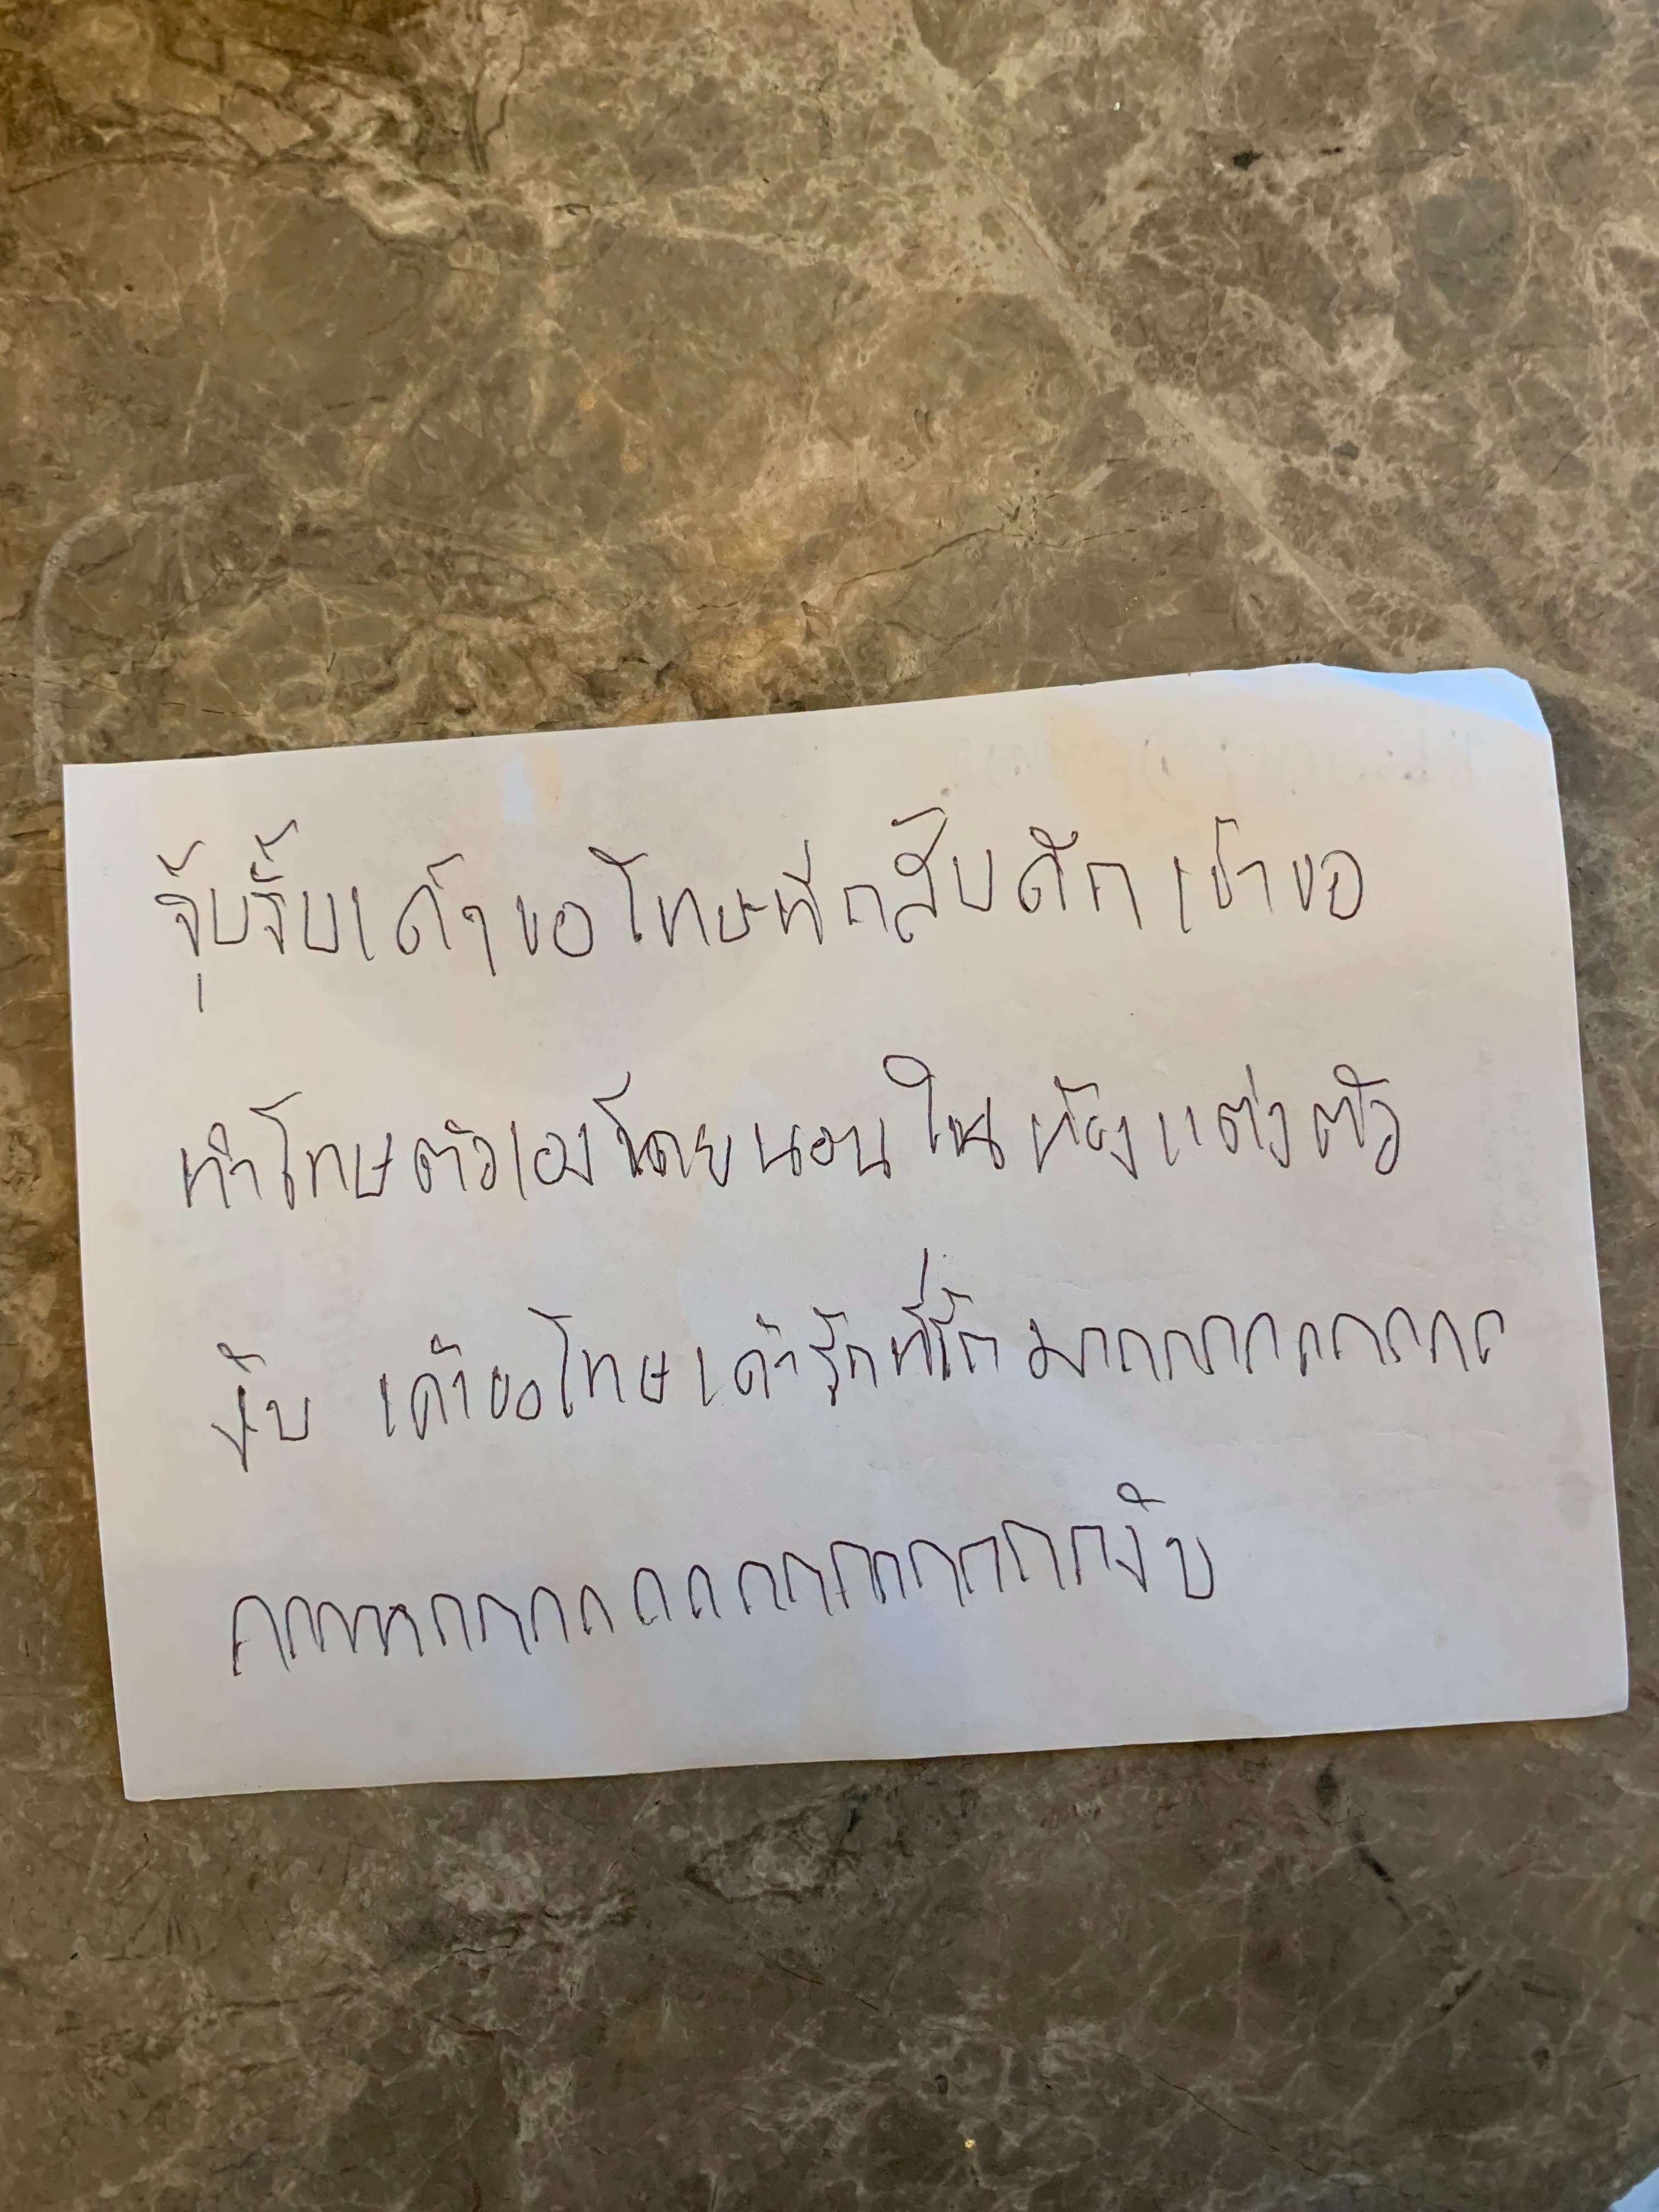 จุ้บจิ้บเค้าขอโทษที่กลับดึก เค้าขอ
ทำโทษตัวเองโดยนอนในห้องแต่งตัว
งับ เค้าขอโทษเค้ารักที่รักมากกกกกกกกก
กกกกกกกกกกกกกกกกกกกกงับ